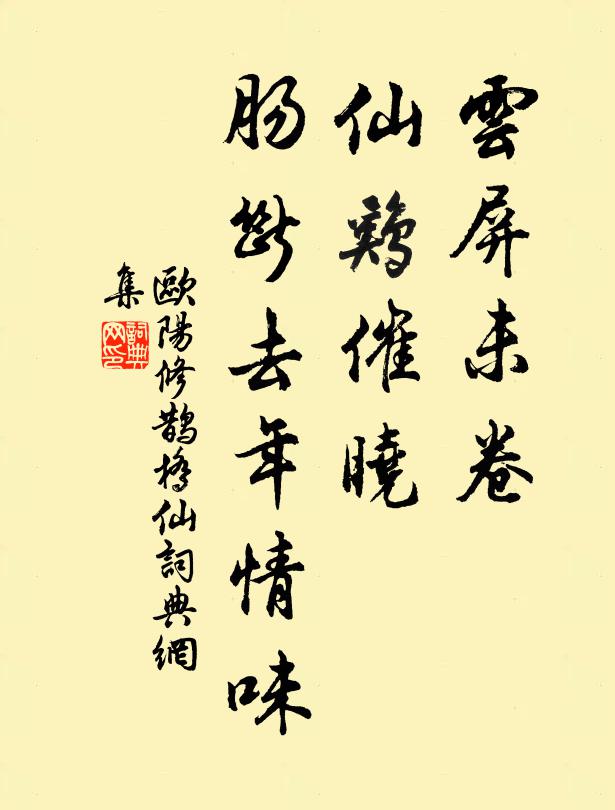 雲屏未卷
仙鷄催曉
肠斷去年情味
歐陽修鹊橋仙詞典網
集
詞典
网印